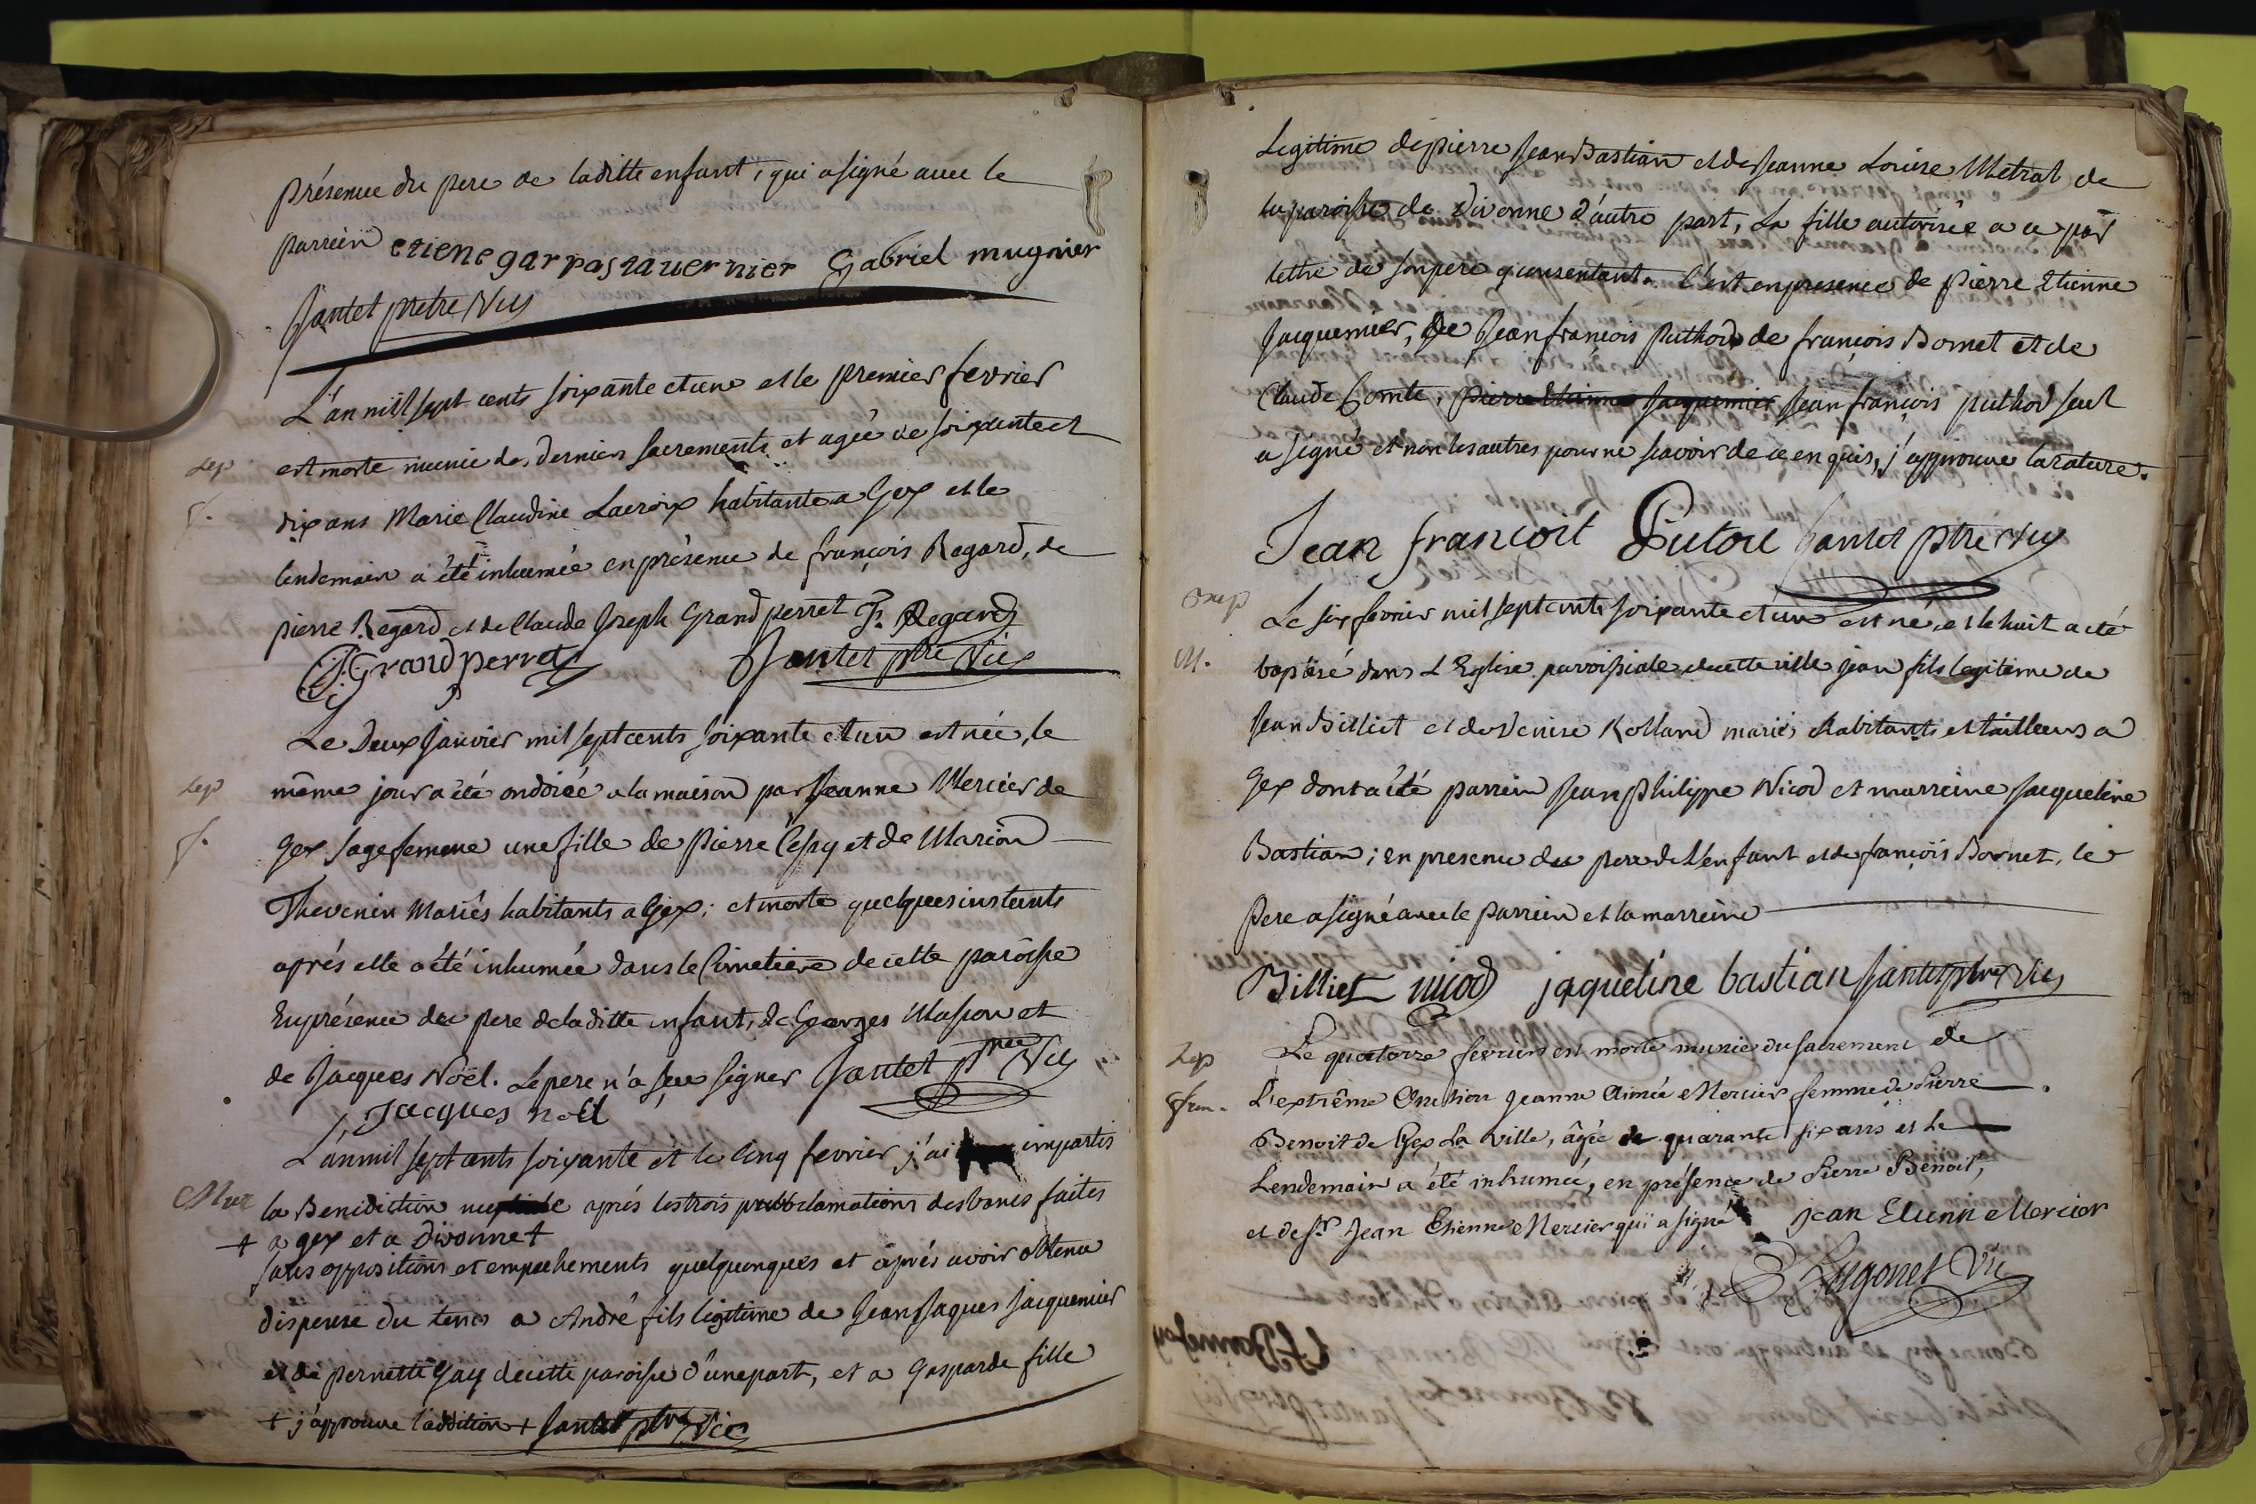 présence du pere de laditte enfant, qui a signé avec le
parrein etiene garpastavernier Gabriel mugnier
Jantet prêtre Vic
L'an mil sept cents soixante et un et le premier fevrier
Sep est morte munie des derniers sacrements et agée de soixante et
f. dix ans Marie Claudine Lacroix habitante a Gex et le
lendemain a été inhumée en présence de françois Regard, de
pierre Regard et de Claude Joseph Grand perret F. Regard
Grandperret Jantet ptre Vic
Le Deux Janvier mil sept cents soixante et un est née, le
Sep même jour a été ondoiée a la maison par Jeanne Mercier de
f. Gex sage femme une fille de Pierre Cessy et de Marion
Thevenin Mariés habitants a Gex; et morte quelques instants
aprés elle a été inhumée dans le Cimetiere de cette paroisse
En présence du pere de laditte enfant, de Georges Masson et
de Jacques Noël. Le pere n'a sçu signer Jantet ptre Vic
Jacques noel
L'an mil sept cents soixante et le cinq fevrier j'ai impartis
Mar la Benediction nuptiale aprés les trois proclamations des bancs faites
+ a gex et a divonne +
sans oppositions et empechements quelquonques et aprés avoir obtenu
dispense du tems a André fils legitime de Jean Jaques Jacquemier
et de pernette Gay de cette paroisse d'une part, et a Gasparde fille
+ j'approuve l'addition + Jantet ptre Vic
Legitime de pierre Jean Bastian et de Jeanne Louise Metral de
la paroisse de Divonne d'autre part, La fille autorisée a ce par
lettre de son pere y consentant. C'est en presence de Pierre Etienne
Jacquemier, de Jean françois Puthod de françois Bornet et de
Claude Comte, pierre Etienne Jacquemier Jean françois puthod seul
a signé et non les autres pour ne scavoir de ce enquis, j'approuve la rature.
Jean francoit Putou Jantet ptre Vic
Bap Le six fevrier mil sept cents soixante et un est né, et le huit a été
M. baptisé dans L'Eglise paroissiale de cette ville jean fils legitime de
Jean Billiet et de Denise Rolland mariés habitants et tailleurs a
Gex dont a été parrein Jean Philippe Nicod et marreine Jacqueline
Bastian; en presence du pere de L'enfant et de françois Bornet, le
pere a signé avec le parrein et la marreine
Billiet nicod jaqueline bastian Jantet ptre Vic
Sep Le quatorze fevrier est morte munie du sacrement de
fem. L'extrême Onction Jeanne Aimée Mercier femme de Pierre
Benoit de Gex La ville, âgée de quarante six ans et le
Lendemain a été inhumée, en présence de Pierre Benoit,
et de Sr Jean Etienne Mercier qui a signé Jean Etienne Mercier
Lugonet Vic